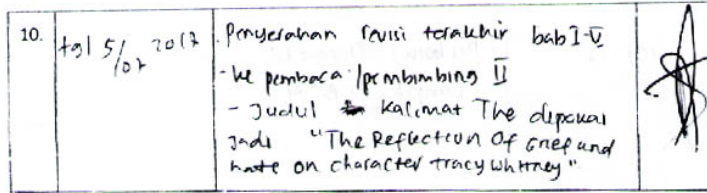 10.
tgl 5/07 2017
Penyerahan revisi terakhir bab I-V
- ke pembaca/pembimbing II
- Judul Kalimat The dipakai
Jadi "The Reflection Of Grief and
hate on character tracy whitney"